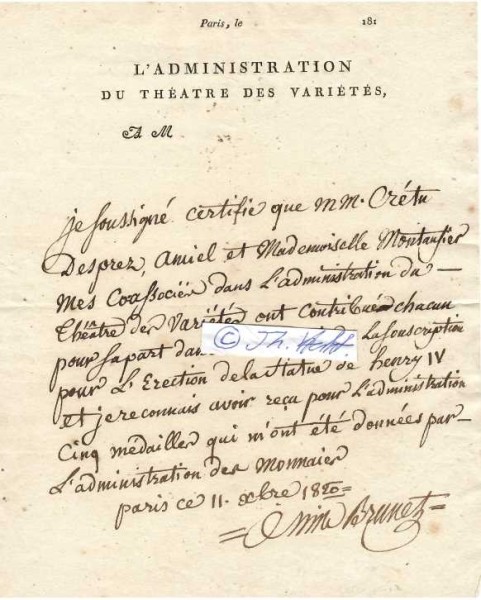 Paris, le 181
L'ADMINISTRATION
DU THÉATRE DES VARIÉTÉS,
A M
je soussigné certifie que MM. Crétu
Desprez, Amiel et Mademoiselle Montansier
Mes Coassociés dans L'administration du
théâtre des Variétés ont contribué chacun
pour sa part dans La souscription
pour L'Erection de la statue de henry IV
et je reconnais avoir reçu pour L'administration
Cinq médailles qui m'ont été données par
L'administration des Monnaies
paris ce 11. 8bre 1820
Brunet
©